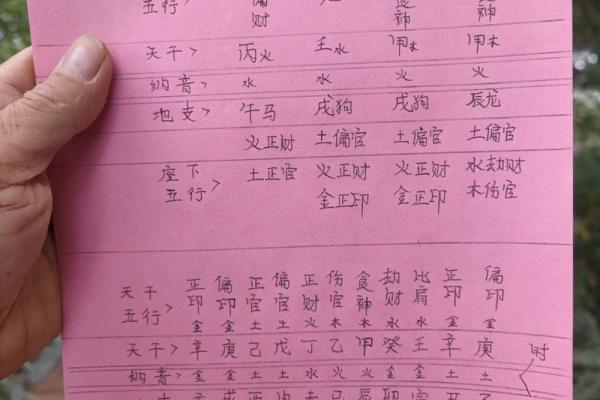 五行> 偏 食 神
财 神
天干> 丙火 壬水 甲木 甲木
纳音> 水 水 火 火
地支> 午马 戌狗 戌狗 辰龙
火正财 土偏官 土偏官 土偏官
座下 土正官 火正财 火正财 水劫财
五行> 金正印 金正印 木伤官
天干 正 偏 正 偏 正 伤 食 劫 比 正 偏
五行> 印 印 官 官 财 官 神 财 肩 印 印
金 金 土 土 火 木 木 水 水 金 金
天干> 辛 庚 己 戊 丁 乙 甲 癸 壬 辛 庚 时
纳音> 金 金 土 土 水 火 火 金 金 土 土